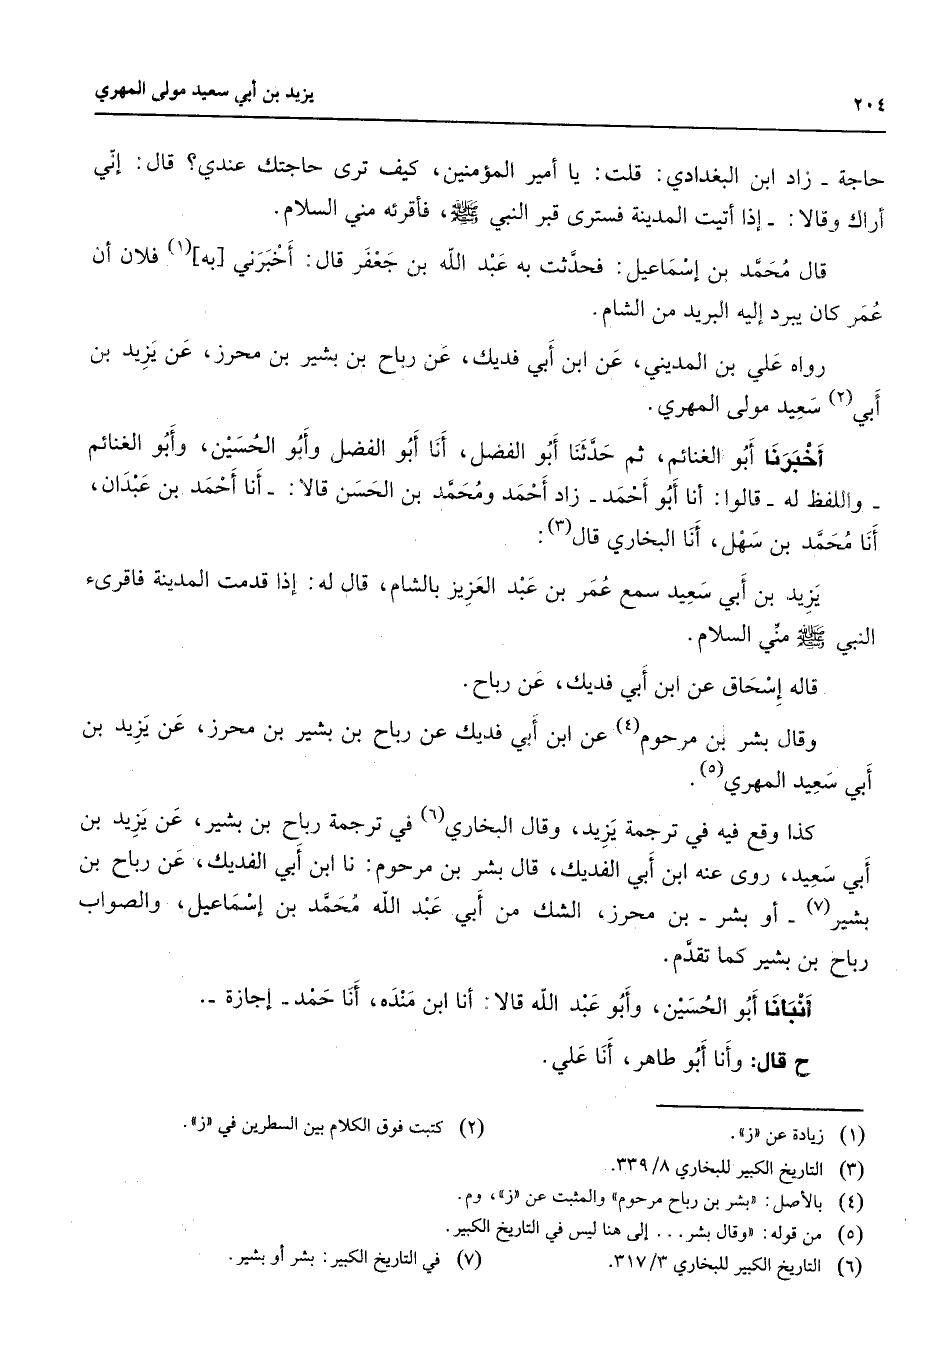 ٢٠٤ يزيد بن أبي سعيد مولى المهري
حاجة ـ زاد ابن البغدادي: قلت: يا أمير المؤمنين، كيف ترى حاجتك عندي؟ قال: إنّي
أراك وقالا: ـ إذا أتيت المدينة فسترى قبر النبي ﷺ، فأقرئه مني السلام.
قال مُحَمَّد بن إسْمَاعيل: فحدَّثت به عَبْد اللّه بن جَعْفَر قال: أَخْبَرَني [به](١) فلان أن
عُمَر كان يبرد إليه البريد من الشام.
رواه عَلي بن المديني، عَن ابن أَبي فديك، عَن رباح بن بشير بن محرز، عَن يَزِيد بن
أَبي(٢) سَعِيد مولى المهري.
أَخْبَرَنَا أَبُو الغنائم، ثم حَدَّثَنَا أَبُو الفضل، أَنَا أَبُو الفضل وأَبُو الحُسَيْن، وأَبُو الغنائم
ـ واللفظ له ـ قالوا: أنا أَبُو أَحْمَد ـ زاد أَحْمَد ومُحَمَّد بن الحَسَن قالا: ـ أَنا أَحْمَد بن عَبْدَان،
أَنَا مُحَمَّد بن سَهْل، أَنَا البخاري قال(٣):
يَزِيد بن أَبي سَعِيد سمع عُمَر بن عَبْد العَزِيز بالشام، قال له: إذا قدمت المدينة فاقرىء
النبي ﷺ منّي السلام.
قاله إِسْحَاق عن ابن أَبي فديك، عَن رباح.
وقال بشر بن مرحوم(٤) عن ابن أَبي فديك عن رباح بن بشير بن محرز، عَن يَزِيد بن
أَبي سَعِيد المهري(٥).
كذا وقع فيه في ترجمة يَزِيد، وقال البخاري(٦) في ترجمة رباح بن بشير، عَن يَزِيد بن
أَبي سَعِيد، روى عنه ابن أَبي الفديك، قال بشر بن مرحوم: نا ابن أَبي الفديك، عَن رباح بن
بشير(٧) ـ أو بشر ـ بن محرز، الشك من أَبي عَبْد اللّه مُحَمَّد بن إسْمَاعيل، والصواب
رباح بن بشير كما تقدَّم.
أَنْبَانَا أَبُو الحُسَيْن، وأَبُو عَبْد اللّه قالا: أنا ابن مَنْدَه، أَنَا حَمْد ـ إجازة ـ.
ح قال: وأَنا أَبُو طاهر، أَنَا عَلي.
(١) زيادة عن «ز». (٢) كتبت فوق الكلام بين السطرين في «ز».
(٣) التاريخ الكبير للبخاري ٨/ ٣٣٩.
(٤) بالأصل: «بشر بن رباح مرحوم» والمثبت عن «ز»، وم.
(٥) من قوله: «وقال بشر... إلى هنا ليس في التاريخ الكبير.
(٦) التاريخ الكبير للبخاري ٣/ ٣١٧. (٧) في التاريخ الكبير: بشر أو بشير.